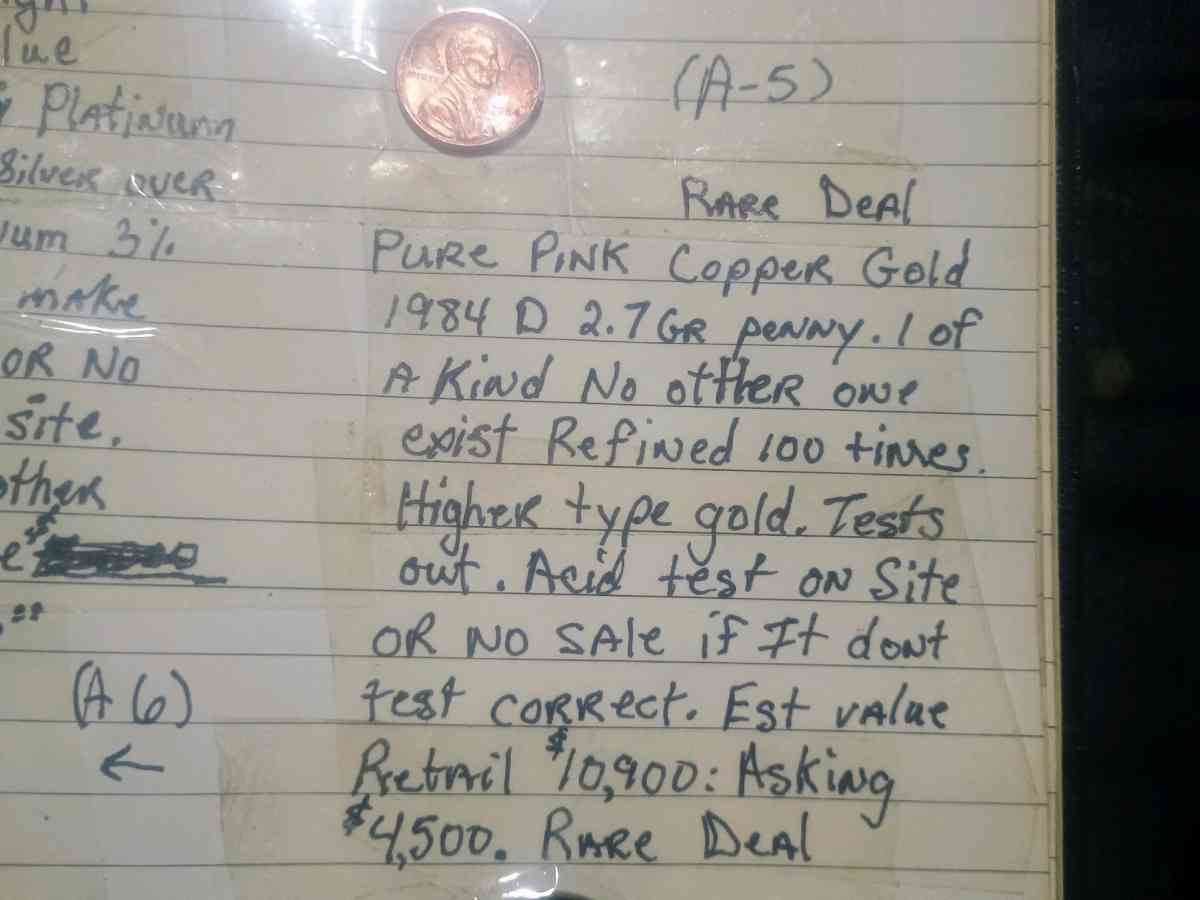 lue
(A-5)
Platinum
Silver over
Rare Deal
um 3%
Pure Pink Copper Gold
make
1984 D 2.7 GR penny. 1 of
OR NO
A Kind No otther one
site.
exist Refined 100 times.
other
Higher type gold. Tests
e $
out. Acid test on Site
OR NO SAle if It dont
(A 6)
test correct. Est value
←
Retail $10,900: Asking
$4,500. Rare Deal